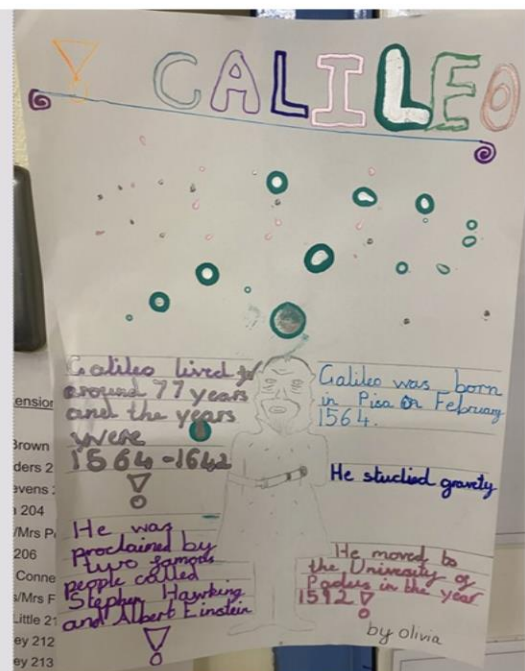 ! GALILEO
Galileo lived for
around 77 years
and the years
were
1564-1642
!
He was
proclaimed by
two famous
people called
Stephen Hawking
and Albert Einstein
!
Galileo was born
in Pisa on February
1564.
He studied gravity
He moved to
the University of
Padua in the year
1592 !
by olivia
ension
Brown
ders 2
evens
204
/Mrs P
206
Conne
s/Mrs F
Little 21
ey 212
ey 213